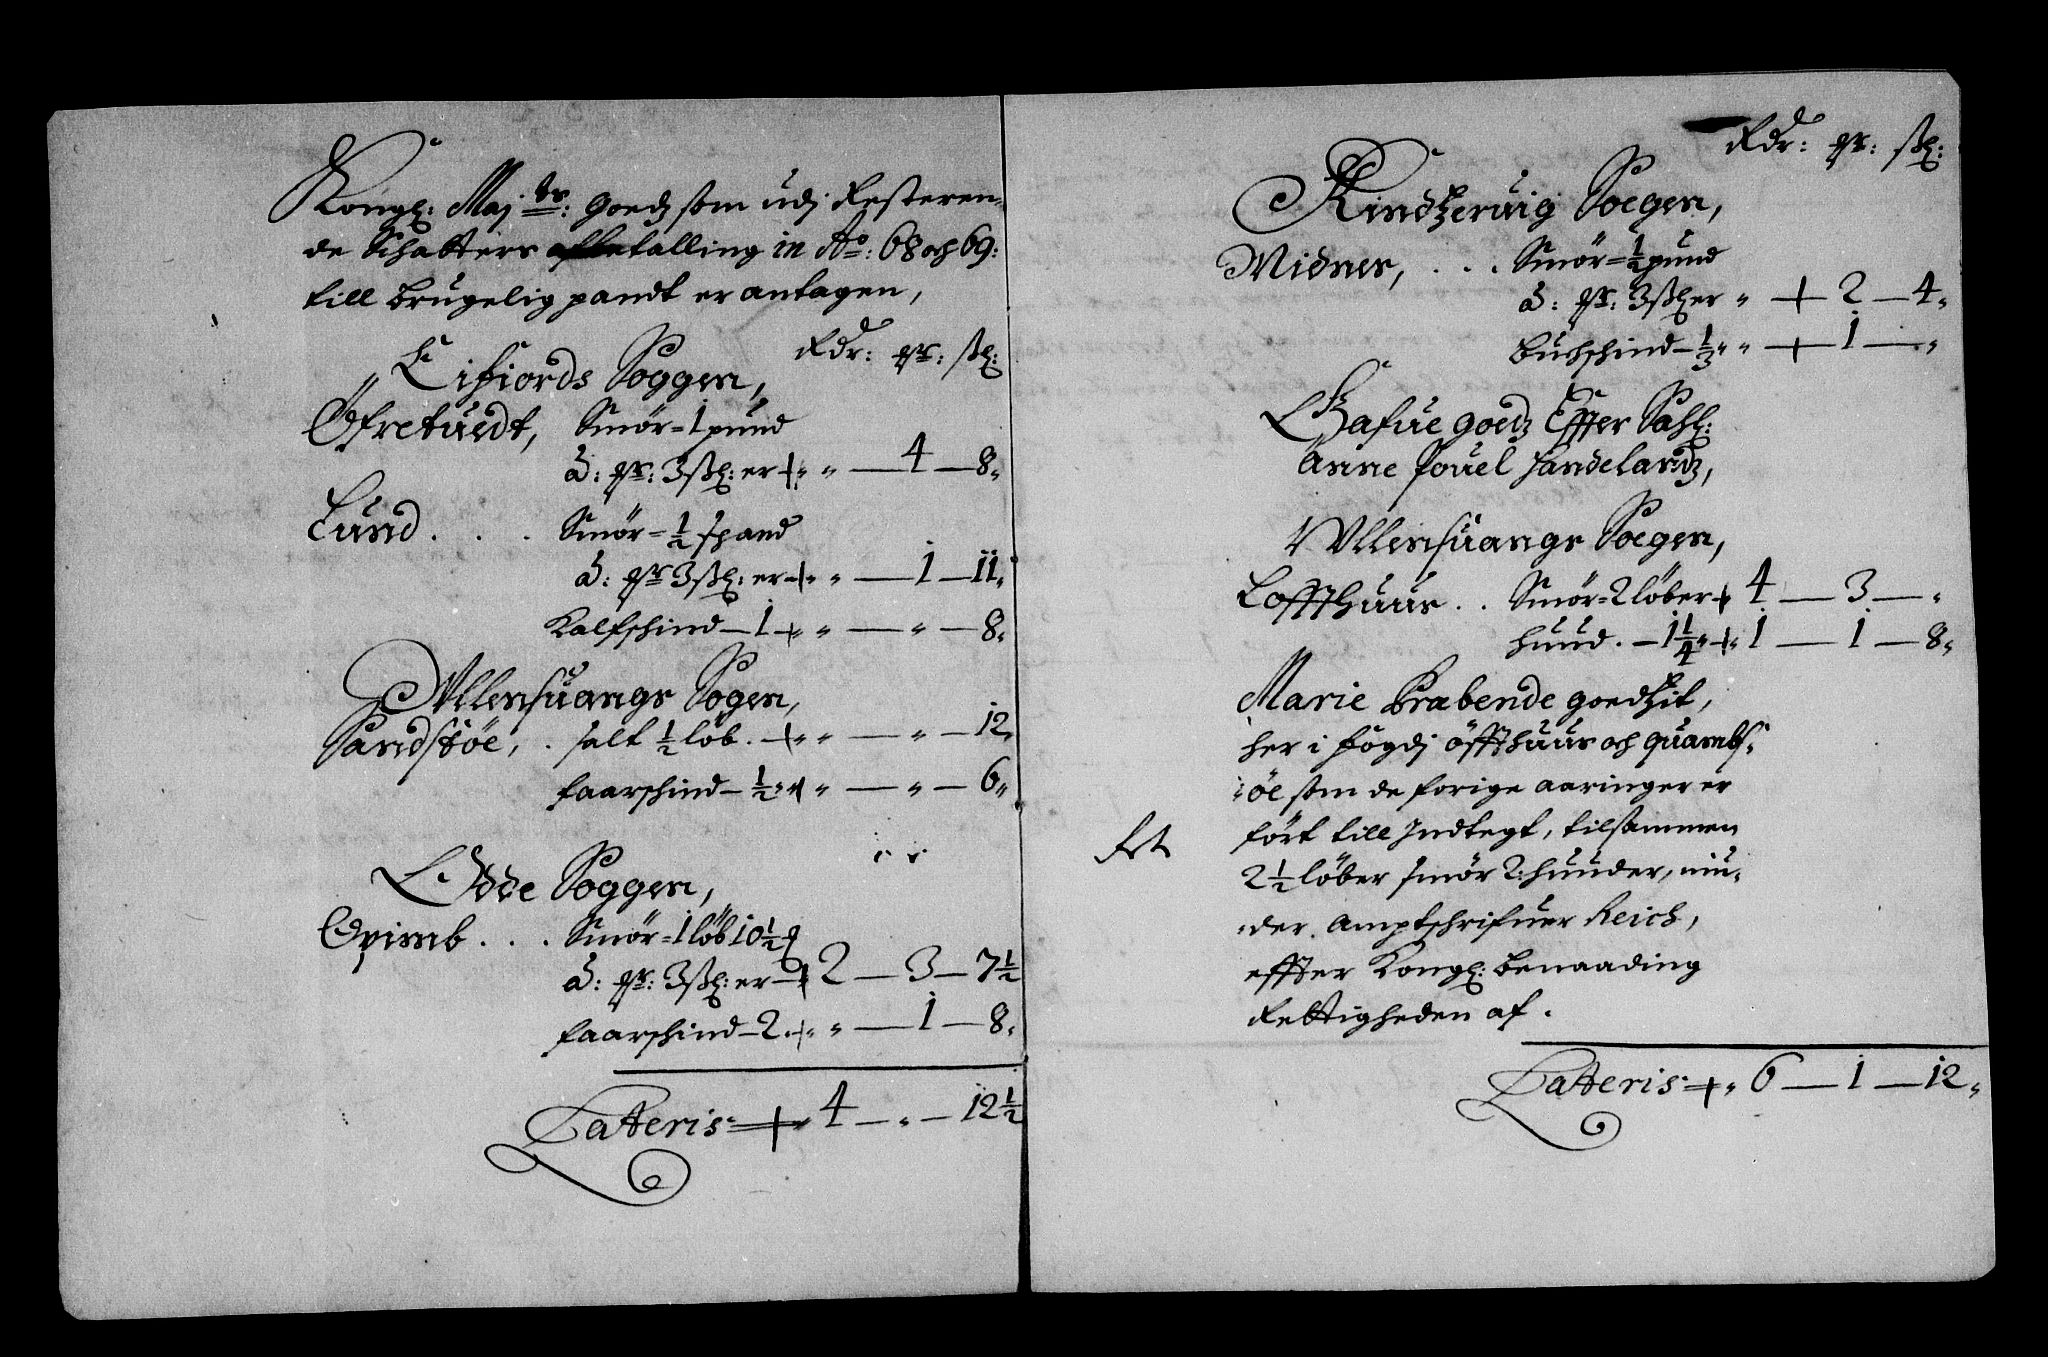 Kongl: Maj:ts: goedz som udj Resteren-
de Schatters afbetalling in Ao: 68 och 69:
till brugelig pandt er antagen,
Rdr: ort: ßl:
Eifiords Soggen,
Öfretuedt, Smör = 1 pund
à: ort: 3 ßl: er + „ „ — 4 — 8„
Lund . . . Smör = ½ spand
à: ort 3 ßl: er + „ „ — 1 — 11„
Kalfschind — 1 + „ „ — „ — 8„
Ullensuangs Sogen,
Sandstöe, . salt ½ löb. + „ „ — „ — 12„
faarschind — ½ „ + „ — „ — 6„
Odde Soggen,
Opimb . . . Smör = 1 löb 10½
à: ort: 3 ßl: er + 2 — 3 — 7½
faarschind — 2 . + „ — 1 — 8„
Lateris + „ 4 — „ — 12½
Rdr: ort: ßl:
Kindzeruig Soegen,
Midnes, . . . Smör = ½ pund
à: ort: 3 ßl er „ + 2 — 4„
buchschind — ⅓ „ „ + 1 — „
Gafue goedz Effter Sahl:
Anne Pouel Handelandz,
Ullensuangs Soegen,
Loffthuus . . Smör = 2 löber + 4 — 3 — „
huud . — 1¼ „ + 1 — 1 — 8„
Marie Brabende goedzit,
her i fögdj öffthuus och quambs-
:öe som de forige aaringer er
fört till Indtegt, tilsammen
2½ löber smör 2: huuder, niu-
:der. Amptschrifuer Reich,
effter Kongl: benaading
Rettigheden af .
Lateris + „ 6 — 1 — 12„